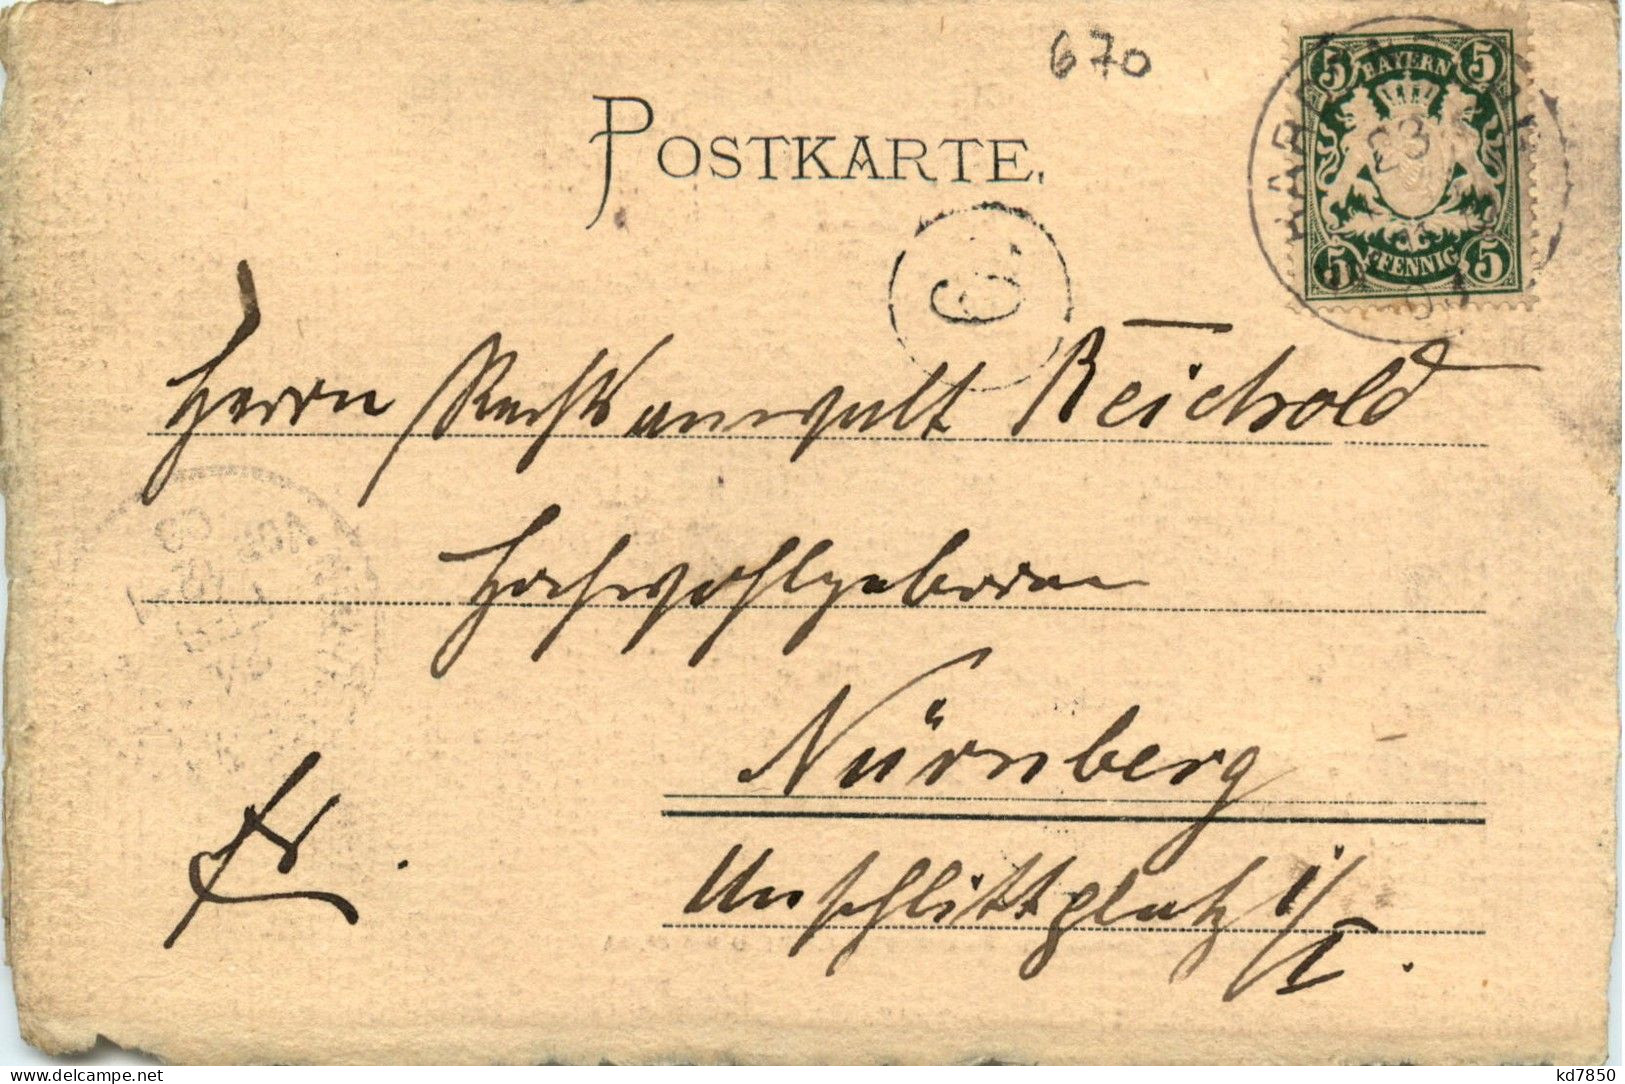 670
POSTKARTE.
5 BAYERN 5
23
5 PFENNIG 5
6.
Herrn Rechtsanwalt Reichold
Hochwohlgeboren
Nürnberg
Unschlittplatz 1/I.
fr.
delcampe.net
kd7850